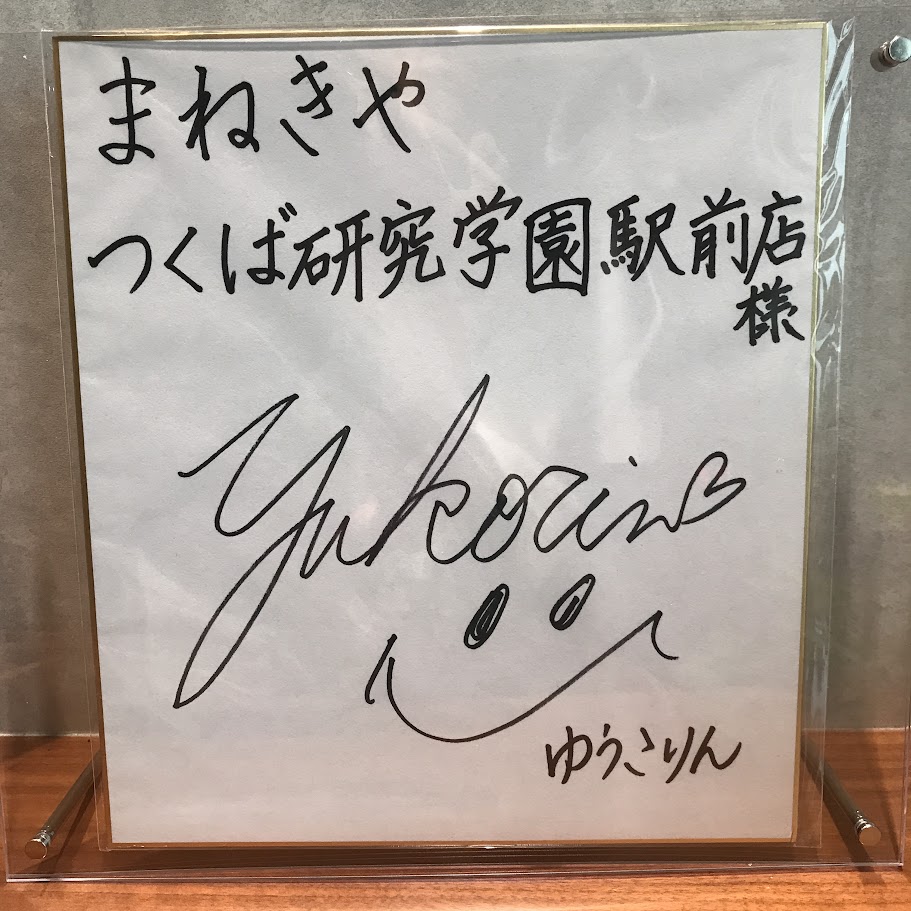 まねきや
つくば研究学園駅前店
様
yukorin
ゆうこりん